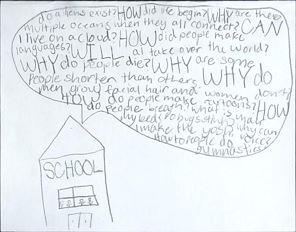 do aliens exist? HOW did life begin? WHY are there
multiple oceans when they all connect? CAN
I live on a cloud? HOW did people make
languages? WILL al take over the world?
WHY do people die? WHY are some
people shorten than others WHY do
men grow facial hair and women don't?
HOW do people make cartoons? HOW
do people breath? what is
my bed?
make the why can
How to people do
gymnastics
SCHOOL